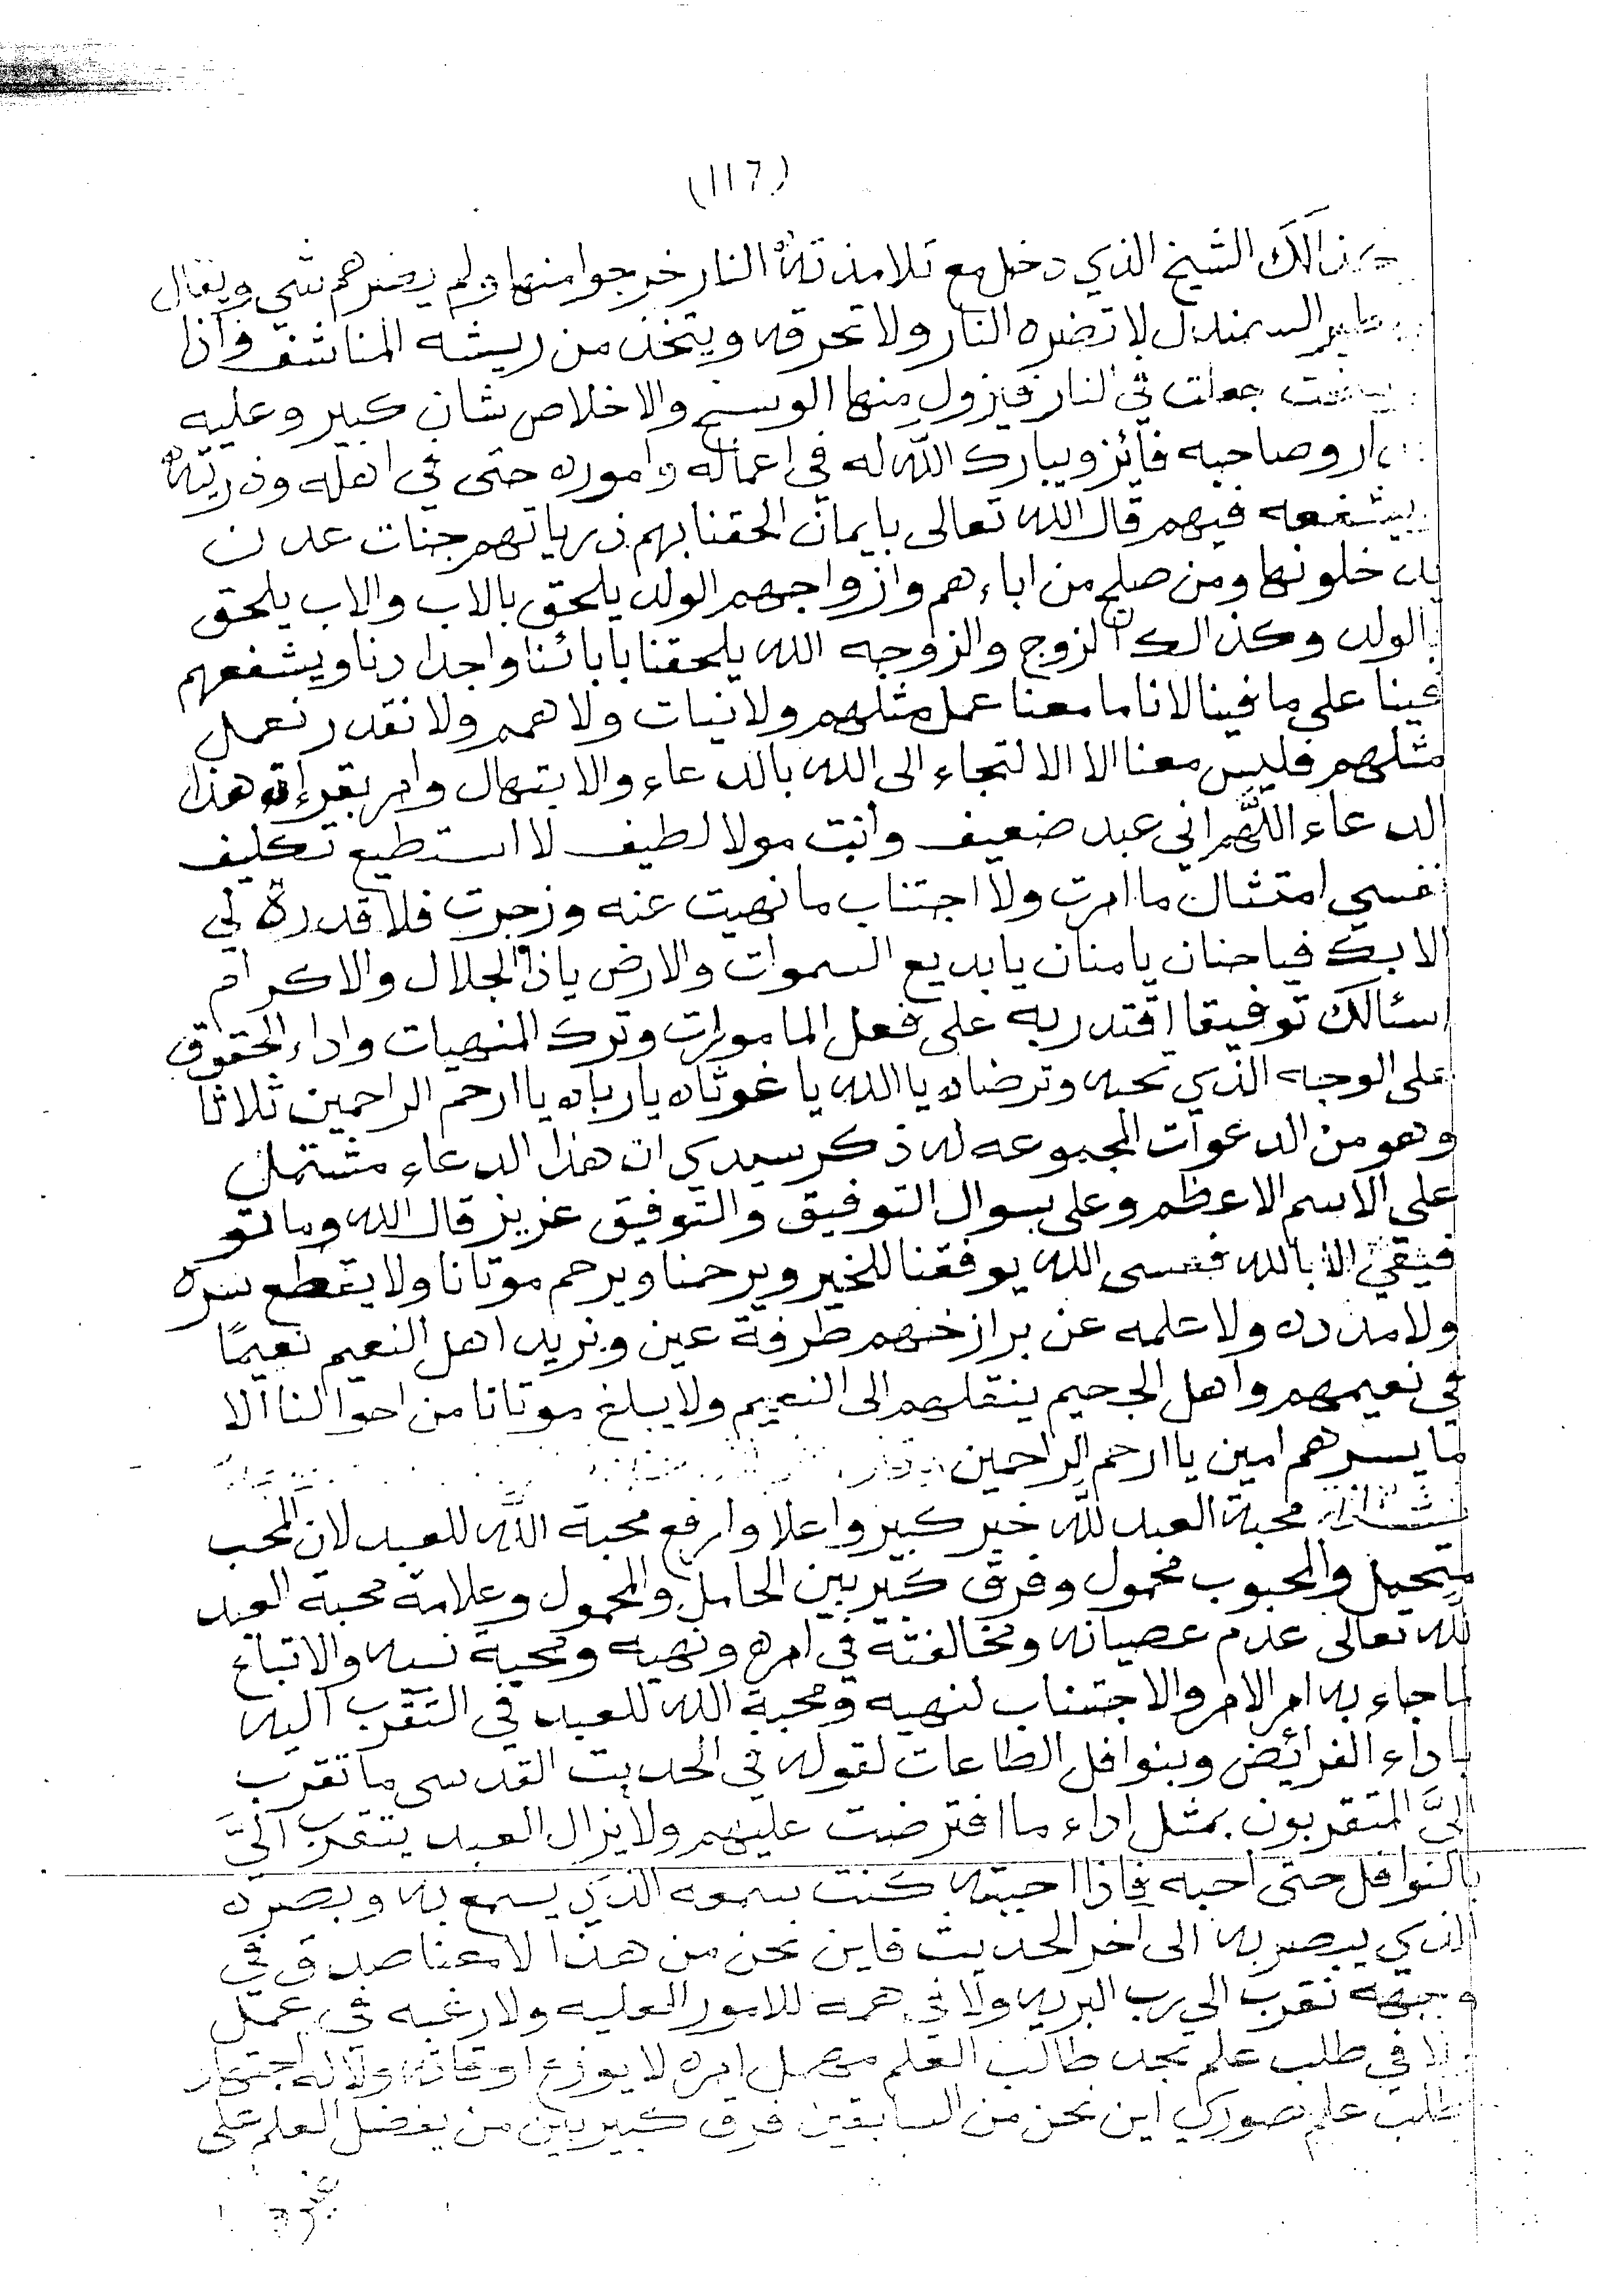 (١١٦)
كذالك الشيخ الذي دخل مع تلامذته النار خرجوا منها ولم يضرهم شي ويقال
طير السمندل لا تضره النار ولا تحرقه ويتخذ من ريشه المناشف واذا
جعلت في النار فيزول منها الوسخ والاخلاص شان كبير وعليه
وصاحبه فائز ويبارك الله له في اعماله واموره حتى في اهله وذريته
يشفعه فيهم قال الله تعالى بايمان الحقنا بهم ذرياتهم جنات عدن
يدخلونها ومن صلح من اباءهم وازواجهم الولد يلحق بالاب والاب يلحق
بالولد وكذالك الزوج والزوجه الله يلحقنا بابائنا واجدادنا ويشفعهم
فينا على ما فينا لانا ما معنا عمل مثلهم ولا نيات ولا همم ولا نقدر نعمل
مثلهم فليس معنا الا الالتجاء الى الله بالدعاء والابتهال وامر بقراءة هذا
الدعاء اللهم اني عبد ضعيف وانت مولا لطيف لا استطيع تكليف
نفسي امتثال ما امرت ولا اجتناب ما نهيت عنه وزجرت فلا قدرة لي
الا بك فيا حنان يا منان يا بديع السموات والارض ياذا الجلال والاكرام
اسئالك توفيقا اقتدر به على فعل المامورات وترك المنهيات واداء الحقوق
على الوجه الذي تحبه وترضاه يا الله يا غوثاه يا رباه يا ارحم الراحمين ثلاثا
وهو من الدعوات المجموعه له ذكر سيدي ان هذا الدعاء مشتمل
على الاسم الاعظم وعلى سوال التوفيق والتوفيق عزيز قال الله وما تو
فيقي الا بالله فعسى الله يوفقنا للخير ويرحمنا ويرحم موتانا ولا يقطع سره
ولا مدده ولا علمه عن برازخهم طرفة عين ونريد اهل النعيم نعيمًا
في نعيمهم واهل الجحيم ينقلهم الى النعيم ولا يبلغ موتانا من احوالنا الا
ما يسرهم امين يا ارحم الراحمين
محبة العبد لله خير كبير واعلا وارفع محبة الله للعبد لان المحب
متحمل والمحبوب محمول وفرق كبير بين الحامل والمحمول وعلامة محبة العبد
لله تعالى عدم عصيانه ومخالفتة في امره ونهيه ومحبة نبيه والاتباع
لما جاء به امر الامر والاجتناب لنهيه ومحبة الله للعبد في التقرب اليه
باداء الفرائض وبنوافل الطاعات لقوله في الحديث القدسى ما تقرب
اليَّ المتقربون بمثل اداء ما افترضت عليهم ولا يزال العبد يتقرب اليَّ
بالنوافل حتى احبه فاذا احببته كنت سمعه الذي يسمع به وبصره
الذي يبصر به الى اخر الحديث فاين نحن من هذا لا معنا صدق في
وجهة تقرب الى رب البريه ولا في همه للامور العليه ولا رغبه في عمل
ولا في طلب علم تجد طالب العلم مهمل امره لا يوزع اوقاته ولا له اجتهاد
طلب علم صوري اين نحن من السابقين فرق كبير بين من يفضل العلم على